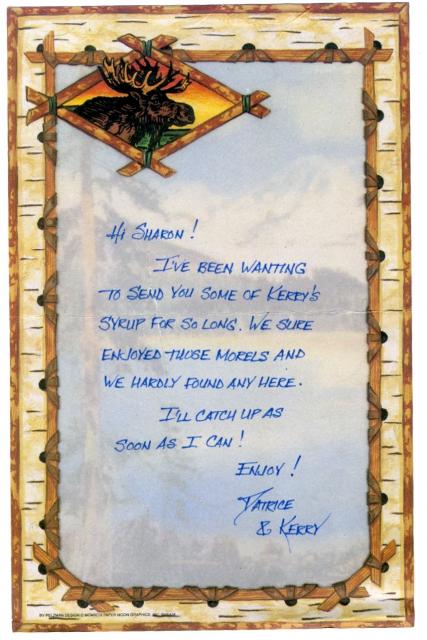 Hi Sharon!
I've been wanting
to send you some of Kerry's
syrup for so long. We sure
enjoyed those morels and
we hardly found any here.
I'll catch up as
soon as I can!
Enjoy!
Patrice
& Kerry